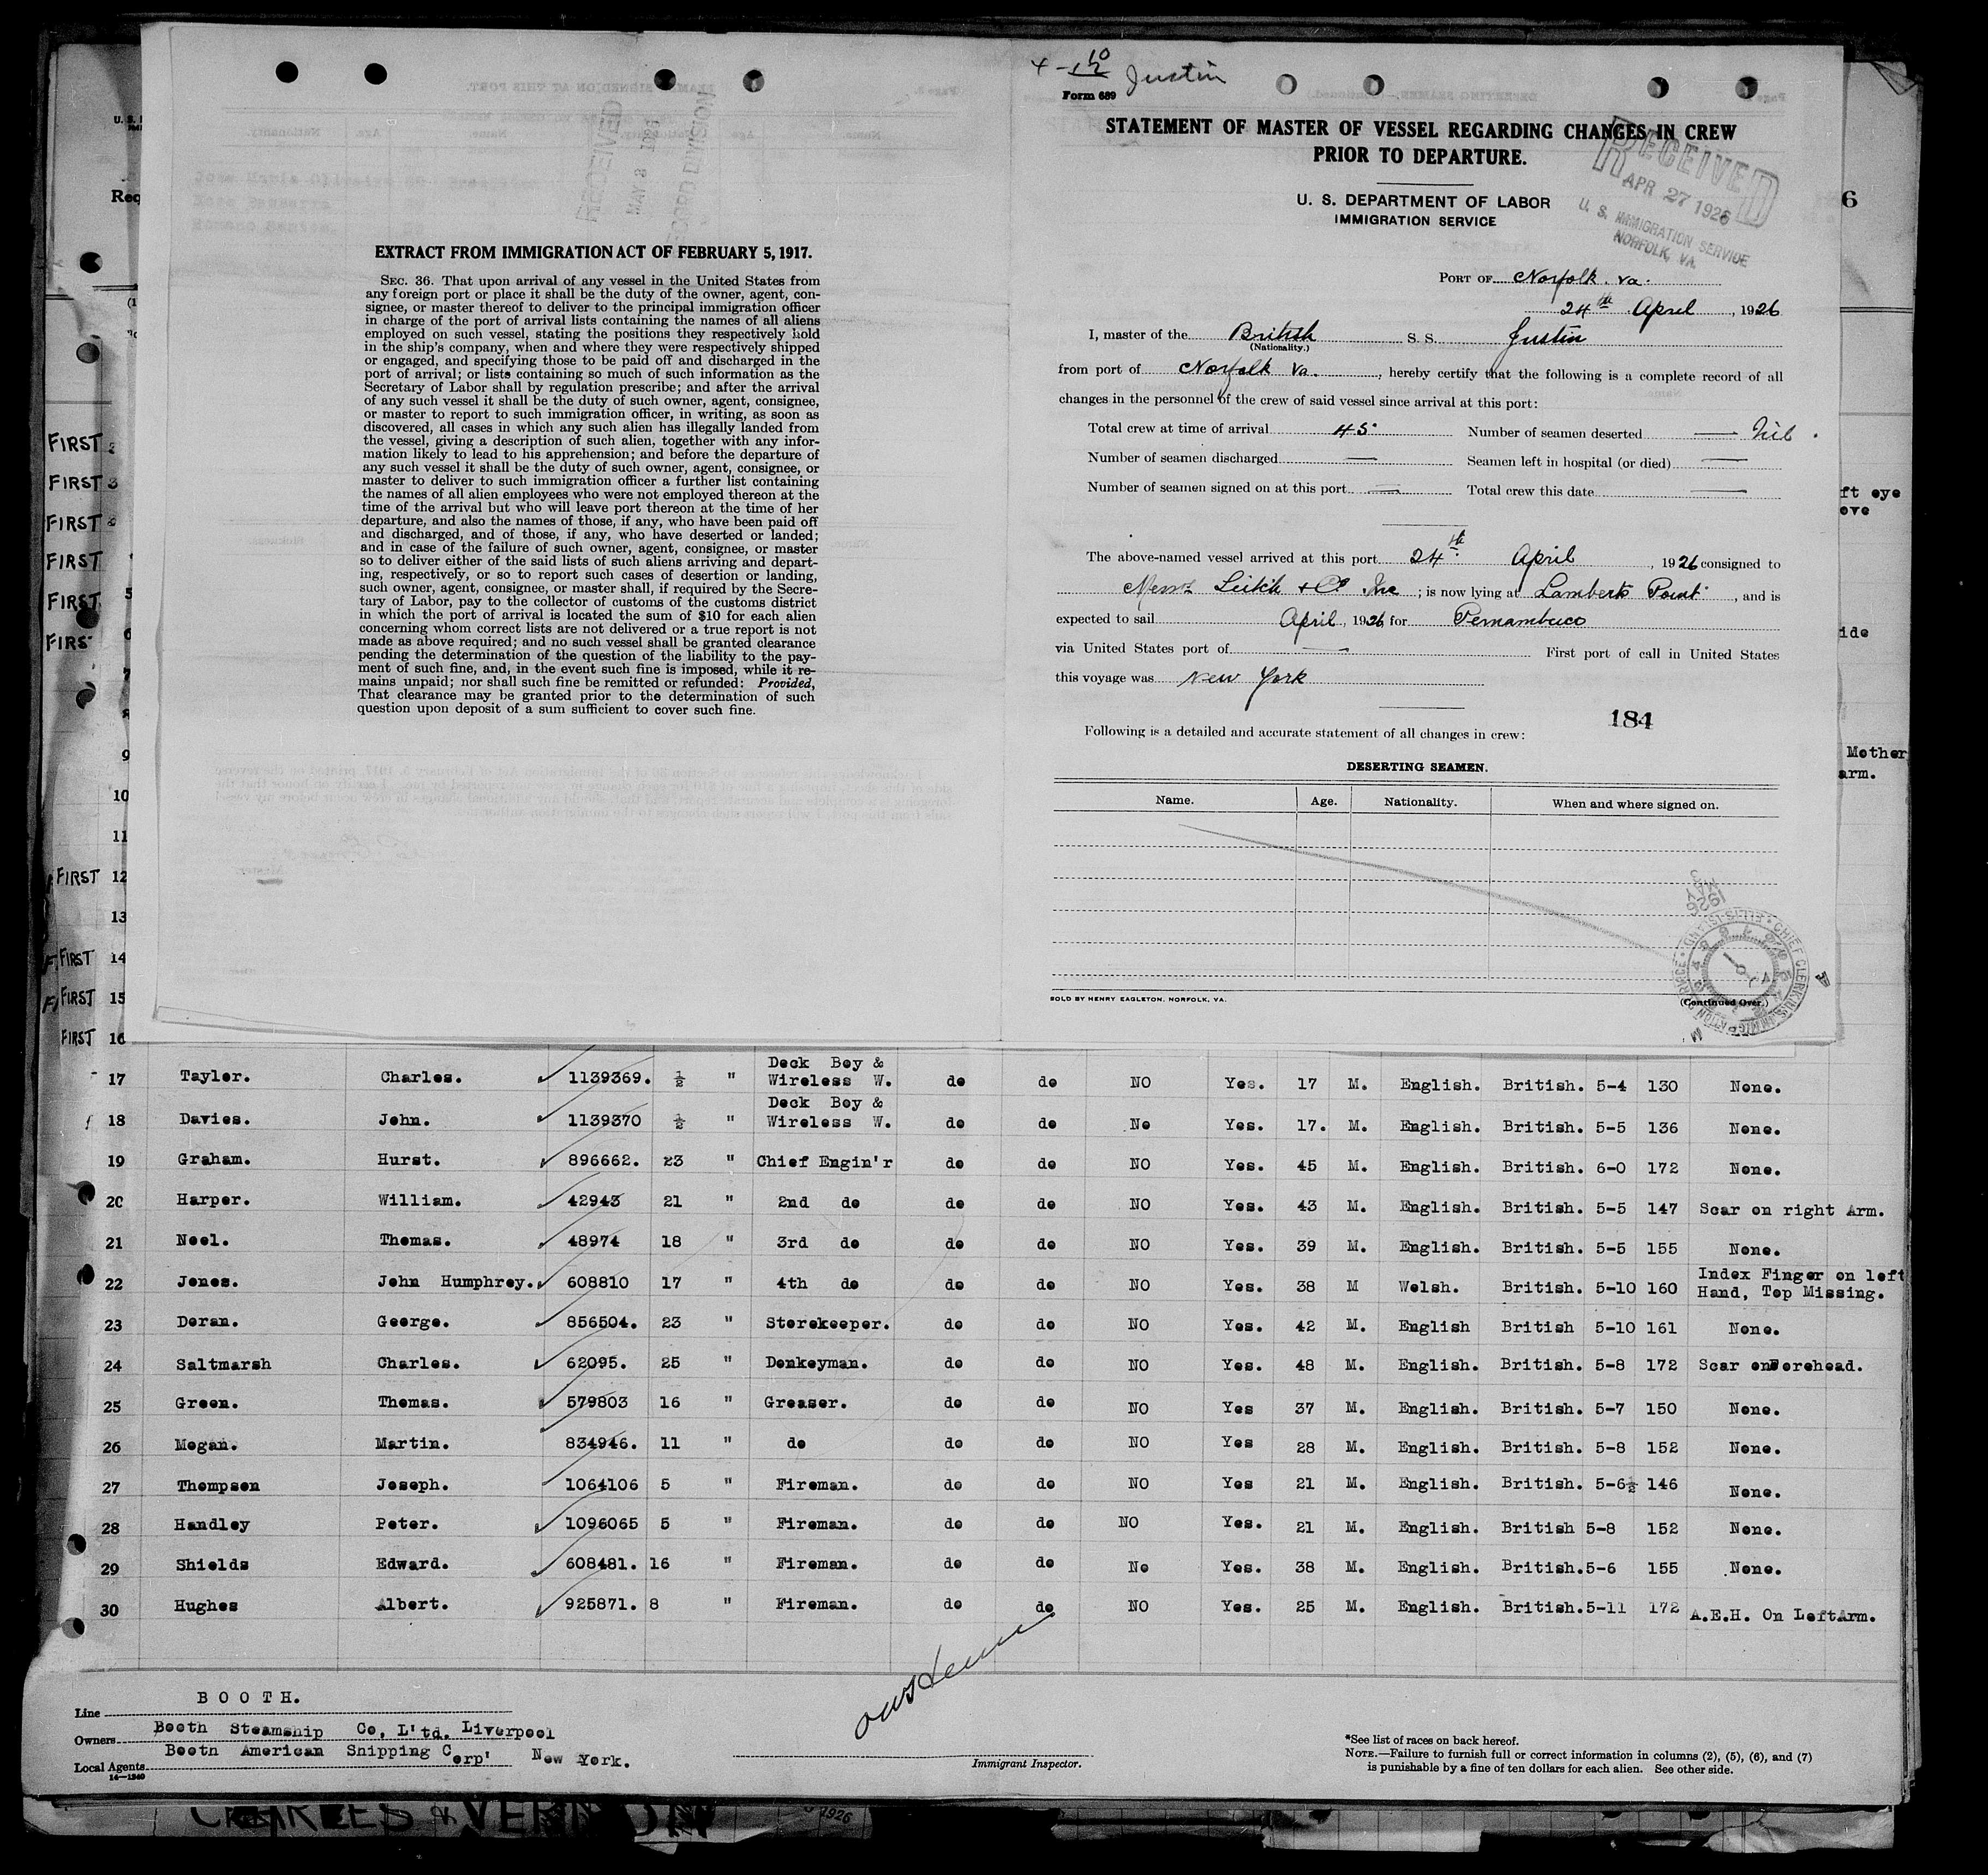 4-1 10/2 Justin
Form 689
STATEMENT OF MASTER OF VESSEL REGARDING CHANGES IN CREW
PRIOR TO DEPARTURE.
U. S. DEPARTMENT OF LABOR
IMMIGRATION SERVICE
RECEIVED
APR 27 1926
U. S. IMMIGRATION SERVICE
NORFOLK, VA.
PORT OF Norfolk. Va.
24th April, 1926
I, master of the British S. S. Justin
(Nationality.)
from port of Norfolk Va., hereby certify that the following is a complete record of all
changes in the personnel of the crew of said vessel since arrival at this port:
Total crew at time of arrival 45 Number of seamen deserted — Nil.
Number of seamen discharged — Seamen left in hospital (or died) —
Number of seamen signed on at this port — Total crew this date —
The above-named vessel arrived at this port 24th April, 1926 consigned to
Messrs Leitch & Co Inc; is now lying at Lamberts Point, and is
expected to sail April, 1926 for Pernambuco
via United States port of — First port of call in United States
this voyage was New York
184
Following is a detailed and accurate statement of all changes in crew:
DESERTING SEAMEN.
Name. Age. Nationality. When and where signed on.
SOLD BY HENRY EAGLETON, NORFOLK, VA.
(Continued Over.)
RECEIVED
MAY 3 1926
RECORD DIVISION
EXTRACT FROM IMMIGRATION ACT OF FEBRUARY 5, 1917.
SEC. 36. That upon arrival of any vessel in the United States from
any foreign port or place it shall be the duty of the owner, agent, con-
signee, or master thereof to deliver to the principal immigration officer
in charge of the port of arrival lists containing the names of all aliens
employed on such vessel, stating the positions they respectively hold
in the ship's company, when and where they were respectively shipped
or engaged, and specifying those to be paid off and discharged in the
port of arrival; or lists containing so much of such information as the
Secretary of Labor shall by regulation prescribe; and after the arrival
of any such vessel it shall be the duty of such owner, agent, consignee,
or master to report to such immigration officer, in writing, as soon as
discovered, all cases in which any such alien has illegally landed from
the vessel, giving a description of such alien, together with any infor-
mation likely to lead to his apprehension; and before the departure of
any such vessel it shall be the duty of such owner, agent, consignee, or
master to deliver to such immigration officer a further list containing
the names of all alien employees who were not employed thereon at the
time of the arrival but who will leave port thereon at the time of her
departure, and also the names of those, if any, who have been paid off
and discharged, and of those, if any, who have deserted or landed;
and in case of the failure of such owner, agent, consignee, or master
so to deliver either of the said lists of such aliens arriving and depart-
ing, respectively, or so to report such cases of desertion or landing,
such owner, agent, consignee, or master shall, if required by the Secre-
tary of Labor, pay to the collector of customs of the customs district
in which the port of arrival is located the sum of $10 for each alien
concerning whom correct lists are not delivered or a true report is not
made as above required; and no such vessel shall be granted clearance
pending the determination of the question of the liability to the pay-
ment of such fine, and, in the event such fine is imposed, while it re-
mains unpaid; nor shall such fine be remitted or refunded: Provided,
That clearance may be granted prior to the determination of such
question upon deposit of a sum sufficient to cover such fine.
FIRST
FIRST 3
FIRST
FIRST
FIRST 5
FIRST 6
7
8
9
10
11
FIRST 12
13
FIRST 14
FIRST 15
FIRST 16
ft eye
ove
ide
Mother
arm.
17 Tayler. Charles. 1139369. ½ " Deck Boy & Wireless W. do do NO Yes. 17 M. English. British. 5-4 130 None.
18 Davies. John. 1139370 ½ " Deck Boy & Wireless W. do do No Yes. 17. M. English. British. 5-5 136 None.
19 Graham. Hurst. 896662. 23 " Chief Engin'r do do NO Yes. 45 M. English. British. 6-0 172 None.
20 Harper. William. 42943 21 " 2nd do do do NO Yes. 43 M. English. British. 5-5 147 Scar on right Arm.
21 Noel. Thomas. 48974 18 " 3rd do do do NO Yes. 39 M. English. British. 5-5 155 None.
22 Jones. John Humphrey. 608810 17 " 4th do do do NO Yes. 38 M Welsh. British. 5-10 160 Index Finger on left Hand, Top Missing.
23 Doran. George. 856504. 23 " Storekeeper. do do NO Yes. 42 M. English British 5-10 161 None.
24 Saltmarsh Charles. 62095. 25 " Donkeyman. do do NO Yes. 48 M. English. British. 5-8 172 Scar on Forehead.
25 Green. Thomas. 579803 16 " Greaser. do do NO Yes 37 M. English. British. 5-7 150 None.
26 Megan. Martin. 834946. 11 " do do do NO Yes 28 M. English. British. 5-8 152 None.
27 Thompson Joseph. 1064106 5 " Fireman. do do NO Yes 21 M. English. British. 5-6½ 146 None.
28 Handley Peter. 1096065 5 " Fireman. do do NO Yes. 21 M. English. British 5-8 152 None.
29 Shields Edward. 608481. 16 " Fireman. do do No Yes. 38 M. English. British. 5-6 155 None.
30 Hughes Albert. 925871. 8 " Fireman. do do NO Yes. 25 M. English. British. 5-11 172 A.E.H. On LeftArm.
Line BOOTH.
Owners Booth Steamship Co, L'td. Liverpool
Local Agents Booth American Shipping Corp' New York.
14—1240
Immigrant Inspector.
*See list of races on back hereof.
NOTE.—Failure to furnish full or correct information in columns (2), (5), (6), and (7)
is punishable by a fine of ten dollars for each alien. See other side.
CHARLES VERNON
1926